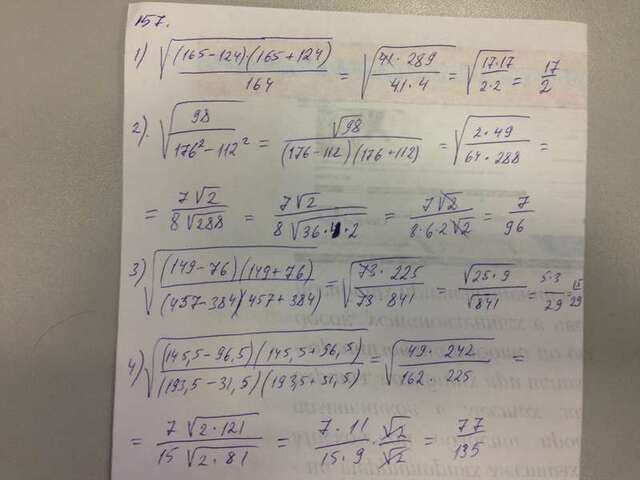 157.
1) √((165-124)(165+124)/164) = √(41·289/(41·4)) = √(17·17/(2·2)) = 17/2
2). √(98/(176²-112²)) = √98/((176-112)(176+112)) = √(2·49/(64·288)) =
= 7√2/(8√288) = 7√2/(8√(36·4·2)) = 7√2/(8·6·2√2) = 7/96
3) √((149-76)(149+76)/((457-384)(457+384))) = √(73·225/(73·841)) = √(25·9)/√841 = 5·3/29 = 15/29
4) √((145,5-96,5)(145,5+96,5)/((193,5-31,5)(193,5+31,5))) = √(49·242/(162·225)) =
= 7√(2·121)/(15√(2·81)) = 7·11/(15·9)·√2/√2 = 77/135